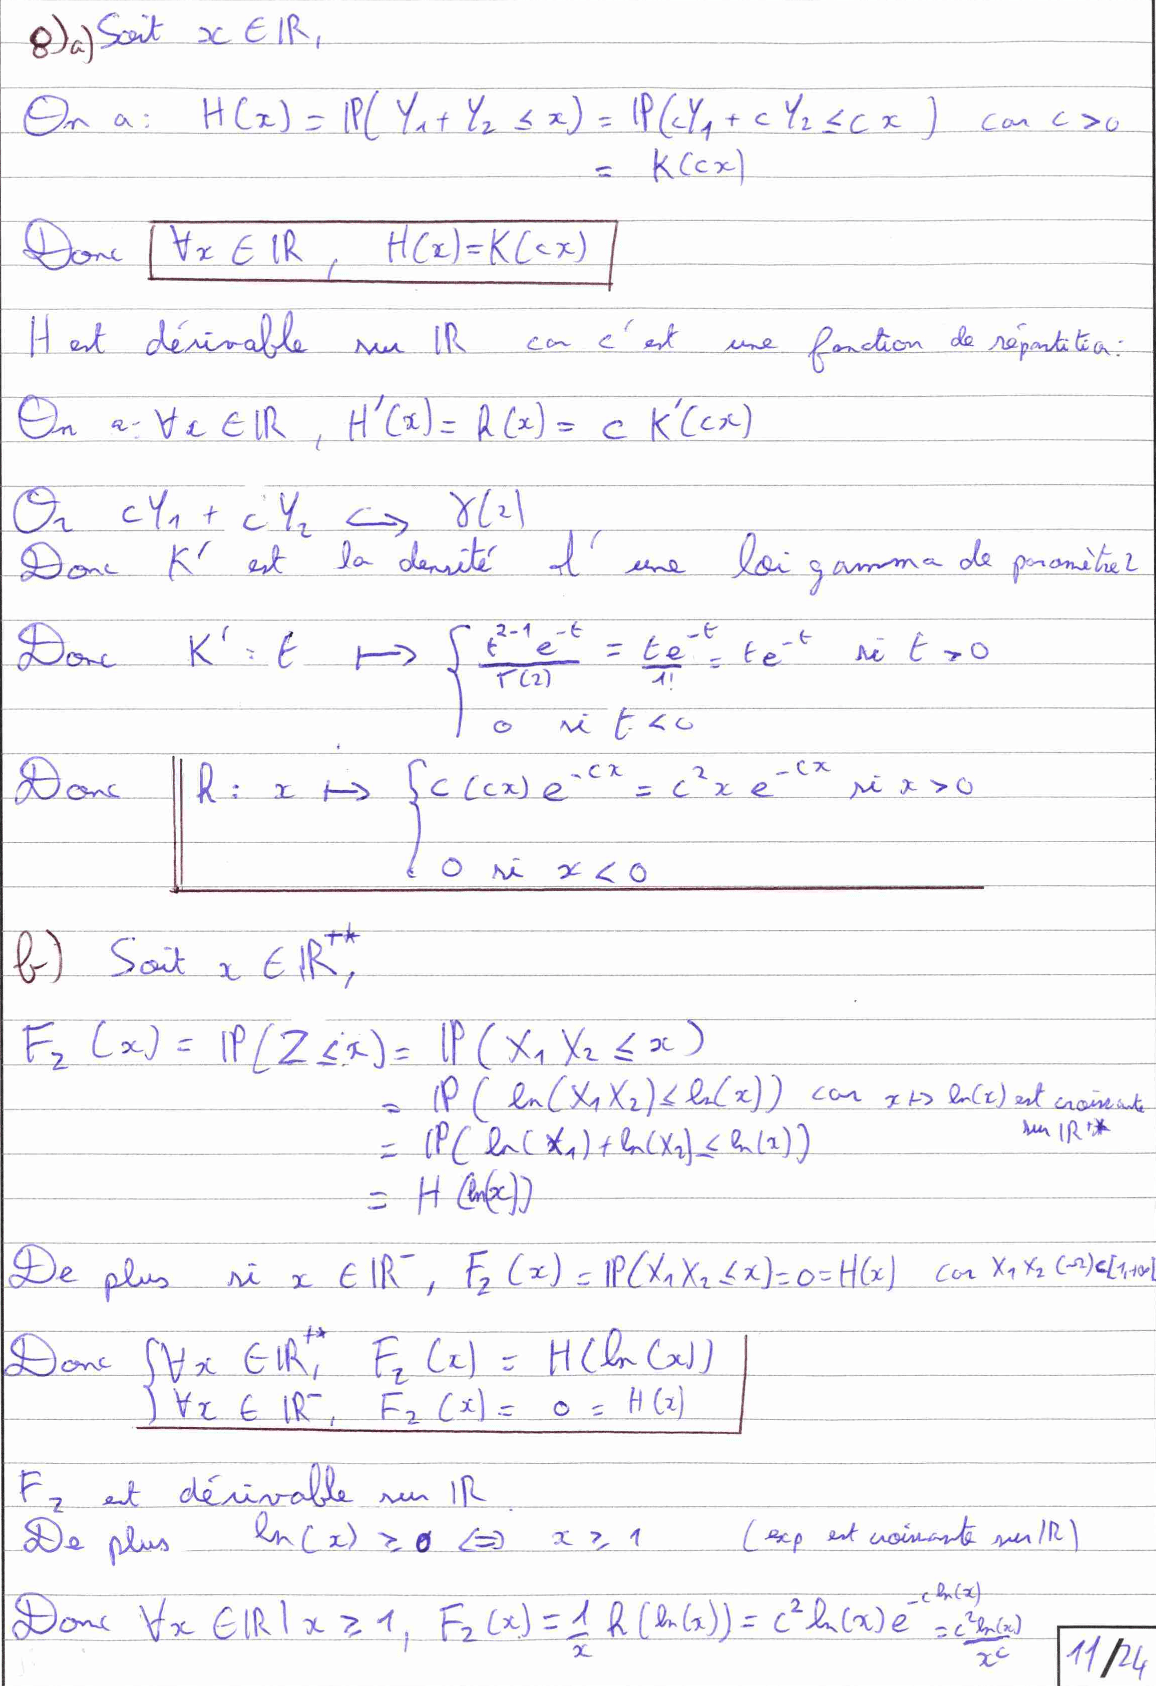 8)a) Soit x ∈ ℝ,
On a : H(x) = ℙ(Y₁ + Y₂ ≤ x) = ℙ(cY₁ + cY₂ ≤ cx) car c > 0
= K(cx)
Donc ∀x ∈ ℝ, H(x) = K(cx)
H est dérivable sur ℝ car c'est une fonction de répartition :
On a : ∀x ∈ ℝ, H'(x) = h(x) = c K'(cx)
Or cY₁ + cY₂ ↪ γ(2)
Donc K' est la densité d'une loi gamma de paramètre 2
Donc K' : t ↦ { t²⁻¹e⁻ᵗ / Γ(2) = te⁻ᵗ / 1! = te⁻ᵗ si t > 0
0 si t < 0
Donc h : x ↦ { c(cx)e^{-cx} = c²x e^{-cx} si x > 0
0 si x < 0
b) Soit x ∈ ℝ⁺*,
F_Z(x) = ℙ(Z ≤ x) = ℙ(X₁X₂ ≤ x)
= ℙ(ln(X₁X₂) ≤ ln(x)) car x ↦ ln(x) est croissante
sur ℝ⁺*
= ℙ(ln(X₁) + ln(X₂) ≤ ln(x))
= H(ln(x))
De plus si x ∈ ℝ⁻, F_Z(x) = ℙ(X₁X₂ ≤ x) = 0 = H(x) car X₁X₂(Ω) ⊂ [1,+∞[
Donc { ∀x ∈ ℝ⁺*, F_Z(x) = H(ln(x))
∀x ∈ ℝ⁻, F_Z(x) = 0 = H(x)
F_Z est dérivable sur ℝ
De plus ln(x) ≥ 0 ⟺ x ≥ 1 (exp est croissante sur ℝ)
Donc ∀x ∈ ℝ | x ≥ 1, F_Z(x) = 1/x h(ln(x)) = c² ln(x) e^{-c ln(x)} = c² ln(x) / x^c
11/24